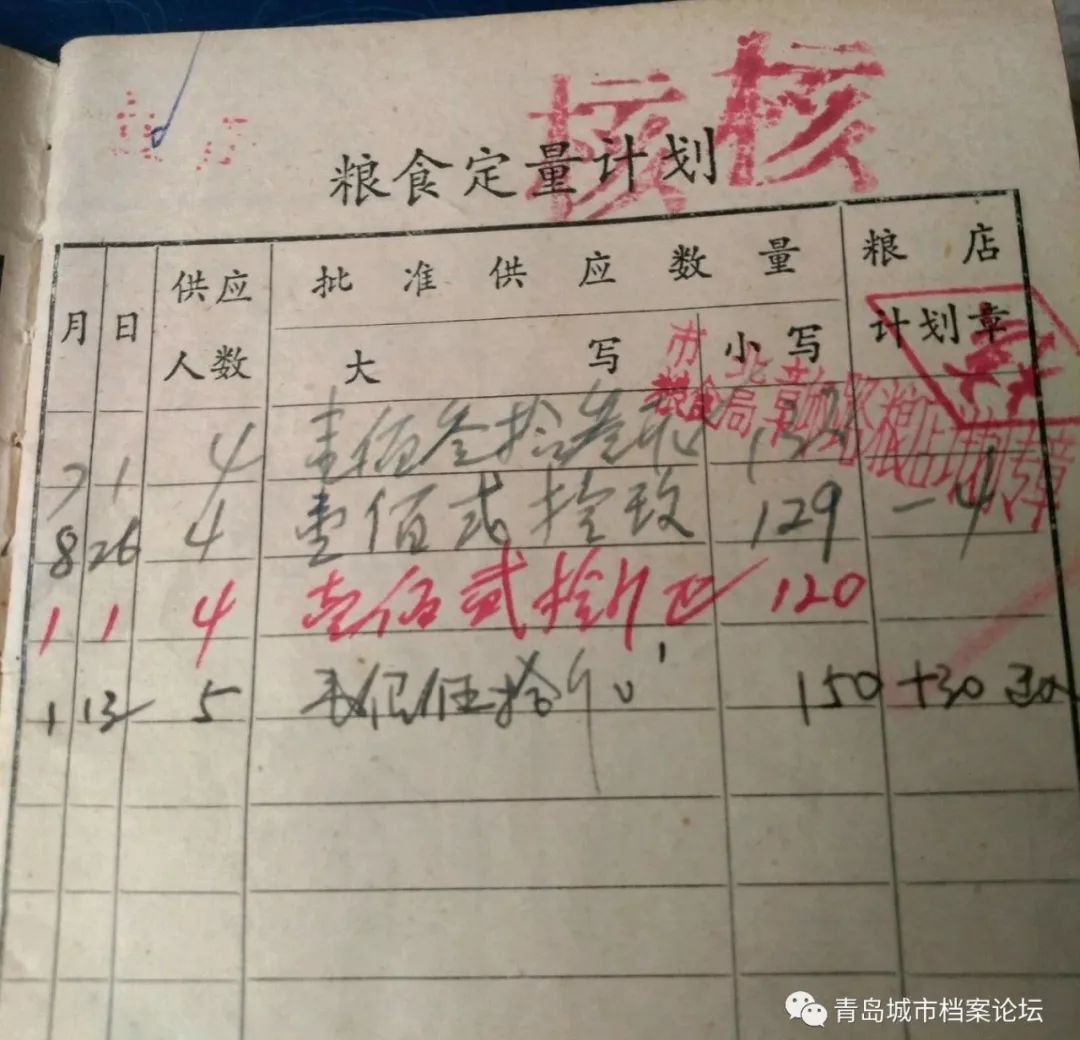 核 核
粮食定量计划
月 日 供应人数 批准供应数量 粮店计划章
大写 小写
市北
粮食局 粮店 专章
7 1 4 壹佰叁拾叁斤 133
8 26 4 壹佰弍拾玖 129 -4
1 1 4 壹佰贰拾斤正 120
1 13 5 壹佰伍拾斤 150 +30
青岛城市档案论坛